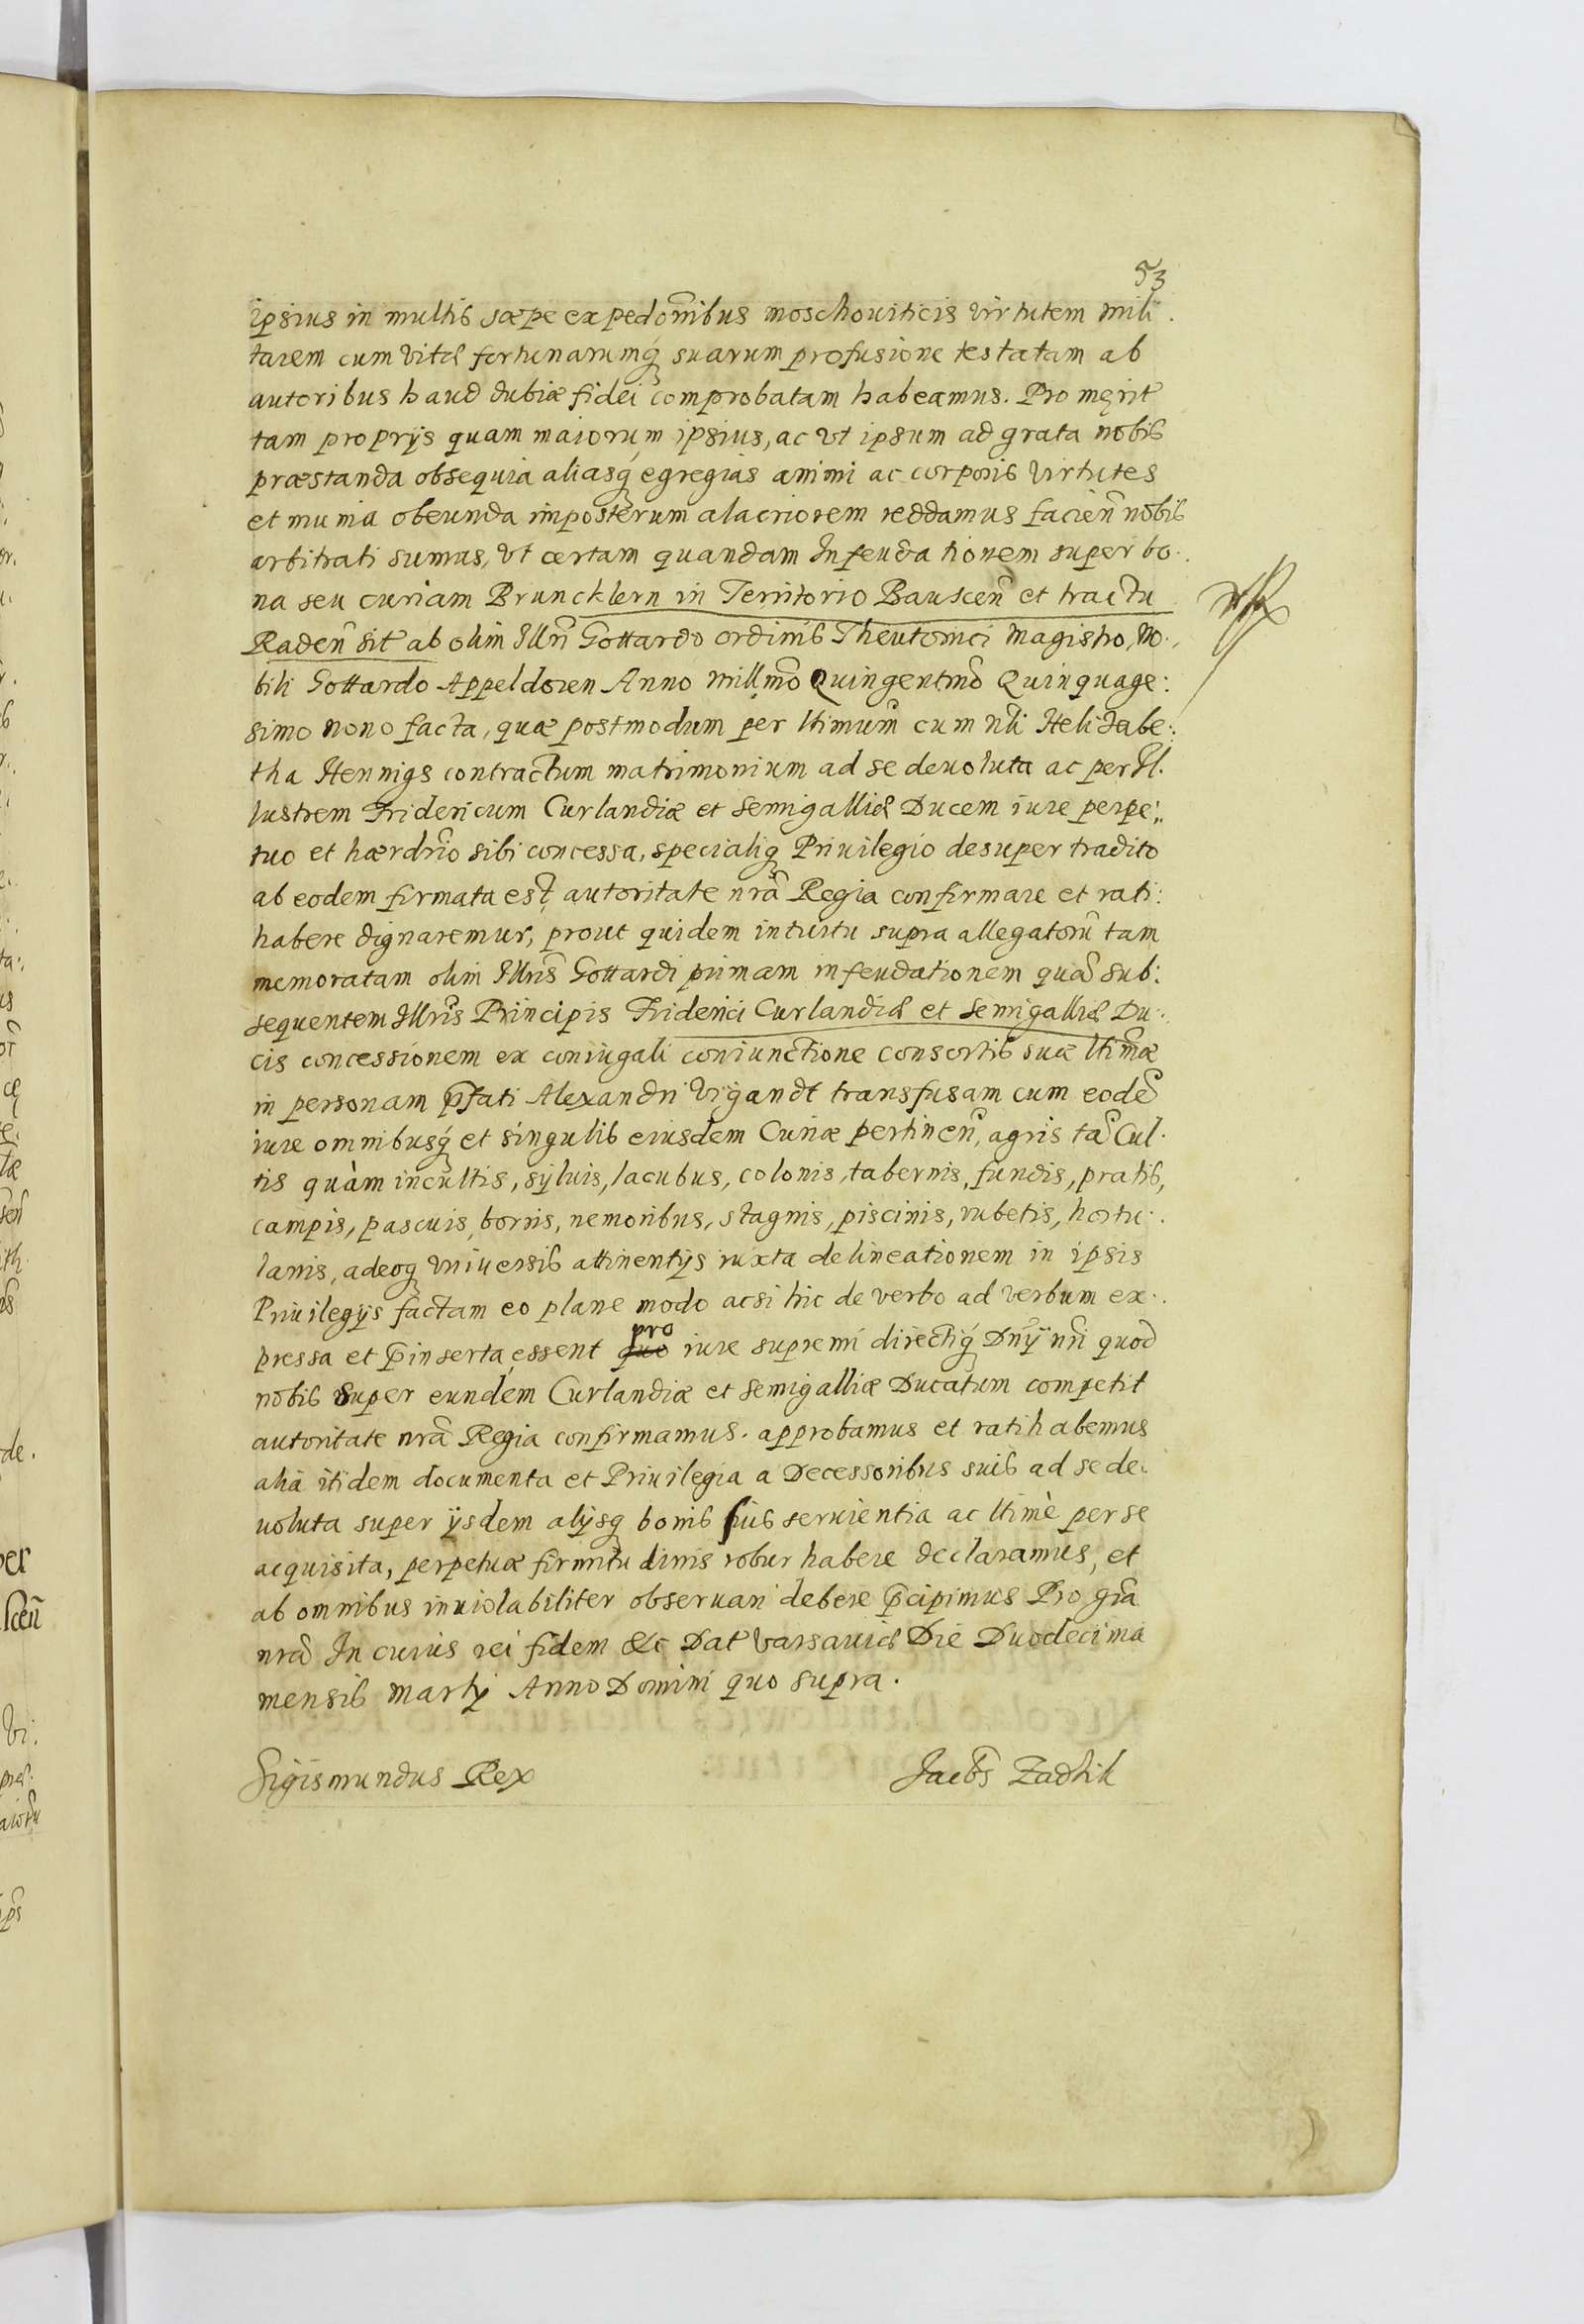 53
ipsius in multis sæpe expedõnibus moschouiticis virtutem mili
tarem cum vitæ fortunarumq́ suarum profusione testatam ab
autoribus haud dubiæ fidei comprobatam habeamus. Pro merit̃
tam proprijs quam maiorum ipsius, ac vt ipsum ad grata nobis
præstanda obsequia aliasq́ egregias animi ac corporis virtutes
et munia obeunda imposterum alacriorem reddamus facieñ nobis
arbitrati sumus, vt certam quandam Infeudationem super bo.
na seu curiam Bruncklern in Territorio Bausceñ et tractu
Radeñ sit̃ ab olim Illri Gottardo ordinis Theutonici Magistro, No.
bili Gottardo Appeldoren Anno millm̃o Quingentm̃o Quinquage:
simo nono facta, quæ postmodum per ltimum̃ cum nli Heli Jabe:
tha Hennigs contractum matrimonium ad se deuoluta ac per Il.
lustrem Fridericum Curlandiæ et Semigalliæ Ducem iure perpe:
tuo et hærdrĩo sibi concessa, specialiq Priuilegio desuper tradito
ab eodem firmata est, autoritate nrã Regia confirmare et rati:
habere dignaremur, prout quidem intuitu supra allegatorũ tam
memoratam olim Illris̃ Gottardi primam infeudationem quã sub:
sequentem Illris̃ Principis Friderici Curlandiæ et Semigalliæ Du.
cis concessionem ex coniugali coniunctione consortis suæ ltimæ
in personam p̃fati Alexandri Vigandt transfusam cum eodẽ
iure omnibusq́ et singulis eiusdem Curiæ pertineñ, agris tã Cul.
tis quàm incultis, syluis, lacubus, colonis, tabernis, fundis, pratis,
campis, pascuis, borris, nemoribus, stagnis, piscinis, rubetis, hortu.
lanis, adeoq vniuersis attinentijs iuxta delineationem in ipsis
Priuilegijs factam eo plane modo acsi hic de verbo ad verbum ex.
pressa et p̃inserta essent quo pro iure supremi directiq́ Dnij̃ nri quod
nobis super eundem Curlandiæ et Semigalliæ Ducatum competit
autoritate nrã Regia confirmamus. approbamus et ratihabemus
alia itidem documenta et Priuilegia a Decessoribus suis ad se de.
uoluta super ijsdem alijsq bonis suis seruientia ac ltimè per se
acquisita, perpetuæ firmitudinis robur habere declaramus, et
ab omnibus inuiolabiliter obseruari debere p̃cipimus Pro grã
nrã In cuius rei fidem &c Dat̃ Varsauiæ Die Duodecima
mensis Martij Anno Domini quo supra.
Sigismundus Rex
Jacobs̃ Zadzik